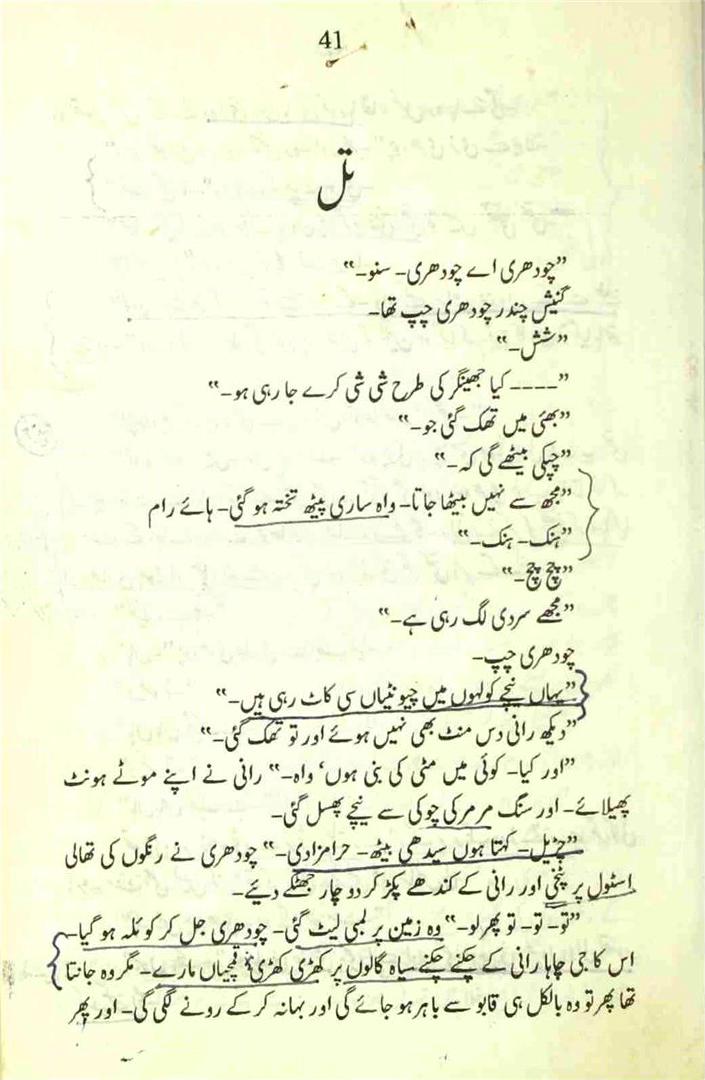 41
تل
”چودھری اے چودھری۔ سنو۔“
گنیش چندر چودھری چپ تھا۔
”شش۔“
”۔۔۔۔ کیا جھینگر کی طرح شی شی کرے جا رہی ہو۔“
”بھئی میں تھک گئی جو۔“
”چپکی بیٹھے گی کہ۔“
”مجھ سے نہیں بیٹھا جاتا۔ واہ ساری پیٹھ تختہ ہو گئی۔ ہائے رام
”ہنک۔ ہنک۔“
”چچ چچ۔“
”مجھے سردی لگ رہی ہے۔“
چودھری چپ۔
”یہاں نیچے کولہوں میں چیونٹیاں سی کاٹ رہی ہیں۔“
”دیکھ رانی دس منٹ بھی نہیں ہوئے اور تو تھک گئی۔“
”اور کیا۔ کوئی میں مٹی کی بنی ہوں‘ واہ۔“ رانی نے اپنے موٹے ہونٹ
پھیلائے۔ اور سنگ مرمر کی چوکی سے نیچے پھسل گئی۔
”چڑیل۔ کہتا ہوں سیدھی بیٹھ۔ حرامزادی۔“ چودھری نے رنگوں کی تھالی
اسٹول پر پٹخی اور رانی کے کندھے پکڑ کر دو چار جھٹکے دیئے۔
”تو۔ تو۔ تو پھر لو۔“ وہ زمین پر لمبی لیٹ گئی۔ چودھری جل کر کوئلہ ہو گیا۔
اس کا جی چاہا رانی کے چکنے چکنے سیاہ گالوں پر کھڑی کھڑی قمچیاں مارے۔ مگر وہ جانتا
تھا پھر تو وہ بالکل ہی قابو سے باہر ہو جائے گی اور بہانہ کر کے رونے لگی گی۔ اور پھر